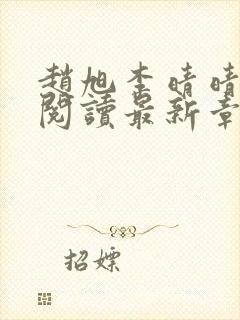 趙旭李晴晴
閱讀最新章
招嫖